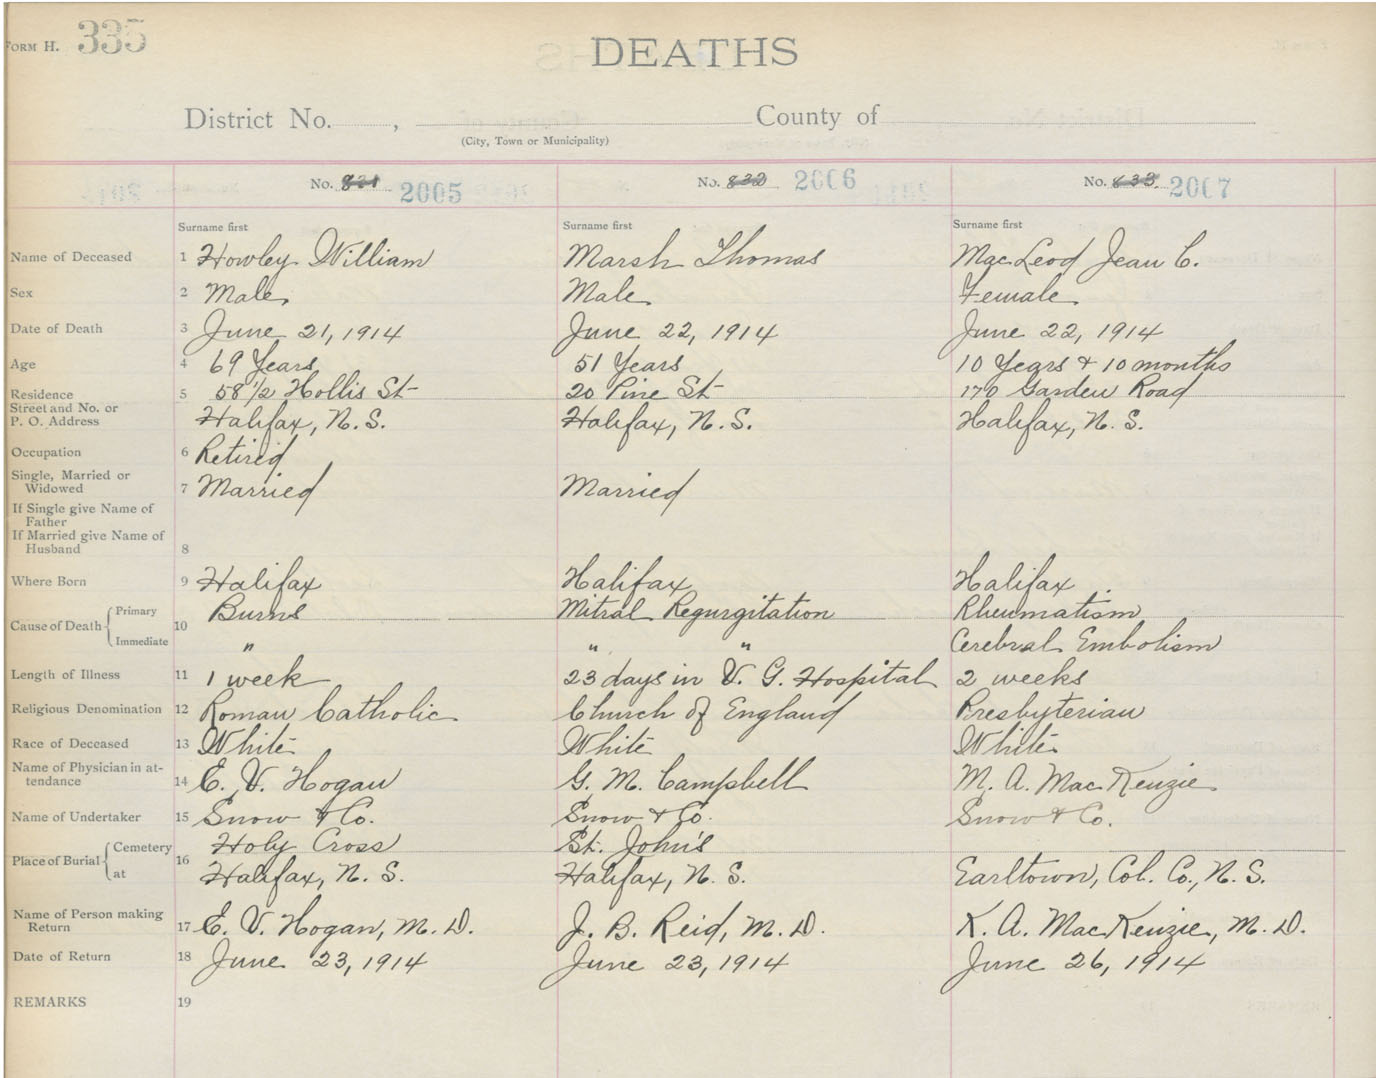 FORM H. 335
DEATHS
District No. , County of
(City, Town or Municipality)
No. 831 2005 No. 832 2006 No. 833 2007
Surname first Surname first Surname first
Name of Deceased 1 Howley William Marsh Thomas MacLeod Jean C.
Sex 2 Male Male Female
Date of Death 3 June 21, 1914 June 22, 1914 June 22, 1914
Age 4 69 Years 51 Years 10 Years + 10 months
Residence 5 58 1/2 Hollis St 20 Pine St 170 Garden Road
Street and No. or
P. O. Address Halifax, N. S. Halifax, N. S. Halifax, N. S.
Occupation 6 Retired
Single, Married or
Widowed 7 Married Married
If Single give Name of
Father
If Married give Name of
Husband 8
Where Born 9 Halifax Halifax Halifax
Cause of Death 10 Primary Burns Mitral Regurgitation Rheumatism
Immediate " " " Cerebral Embolism
Length of Illness 11 1 week 23 days in V. G. Hospital 2 weeks
Religious Denomination 12 Roman Catholic Church of England Presbyterian
Race of Deceased 13 White White White
Name of Physician in at-
tendance 14 E. V. Hogan G. M. Campbell M. A. MacKenzie
Name of Undertaker 15 Snow & Co. Snow & Co. Snow & Co.
Place of Burial 16 Cemetery Holy Cross St. John's
at Halifax, N. S. Halifax, N. S. Earltown, Col. Co., N. S.
Name of Person making
Return 17 E. V. Hogan, M. D. J. B. Reid, M. D. K. A. MacKenzie, M. D.
Date of Return 18 June 23, 1914 June 23, 1914 June 26, 1914
REMARKS 19